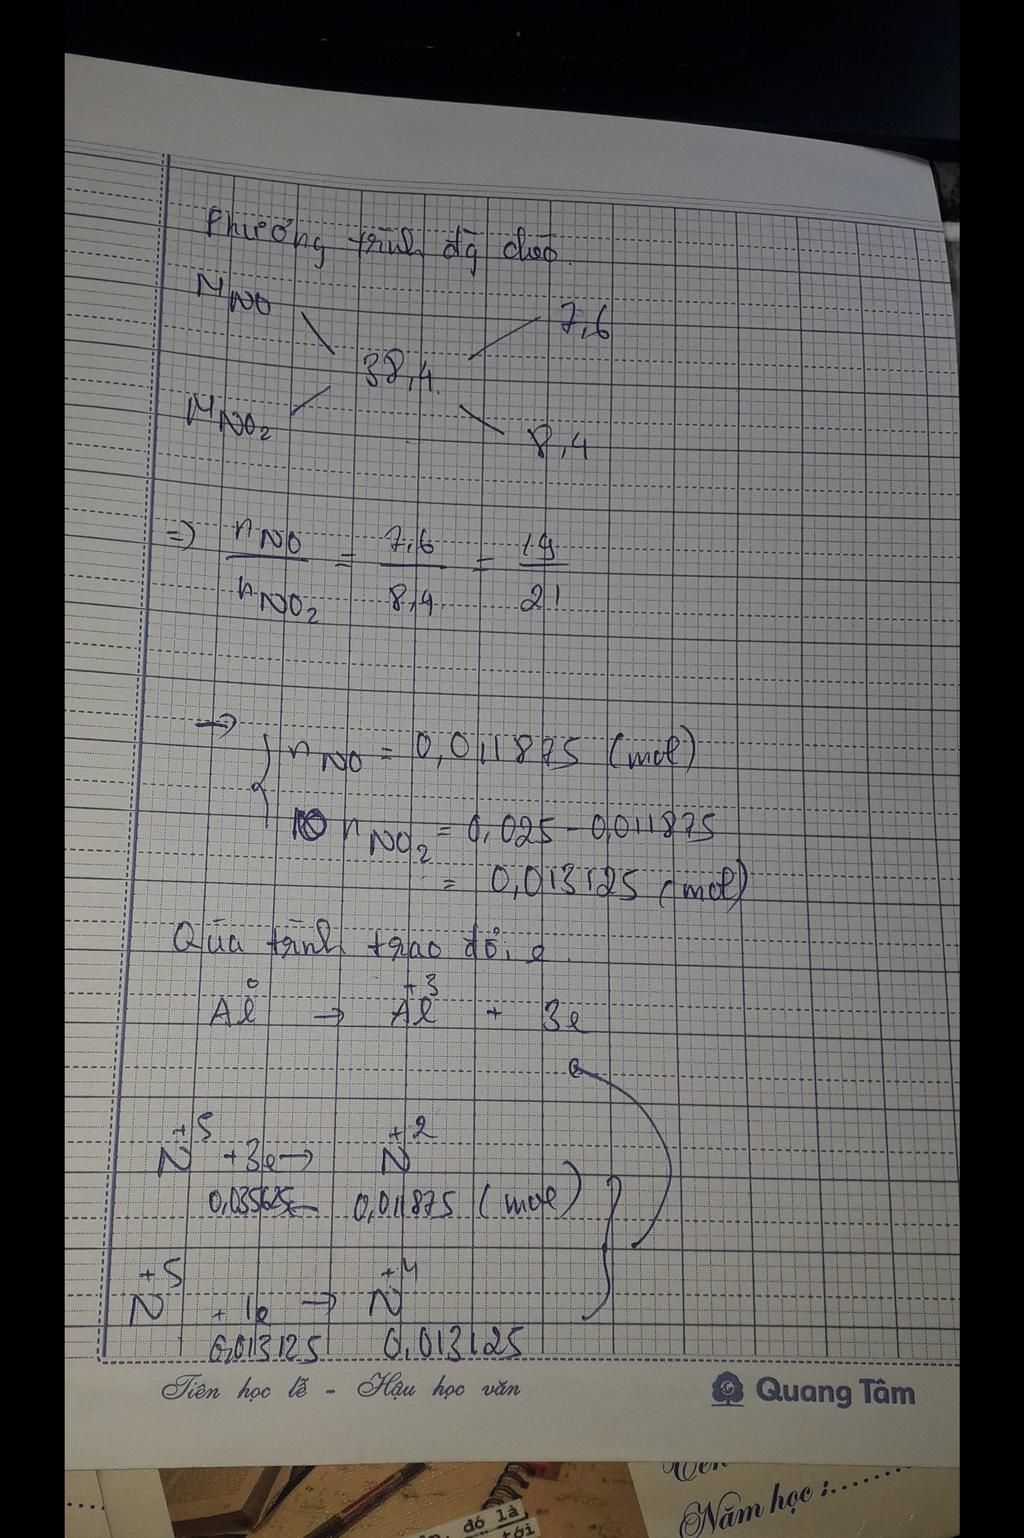 Phương trình đg chéo
M NO
7,6
38,4
M NO2
8,4
=> nNO / nNO2 = 7,6 / 8,4 = 19 / 21
→ { nNO = 0,011875 (mol)
nNO2 = 0,025 - 0,011875
= 0,013125 (mol)
Qúa trình trao đổi e
Al⁰ → Al⁺³ + 3e
N⁺⁵ + 3e → N⁺²
0,035625 ← 0,011875 (mol)
N⁺⁵ + 1e → N⁺⁴
0,013125 0,013125
Tiên học lễ - Hậu học văn
Quang Tâm
Năm học :........
đó là
tới